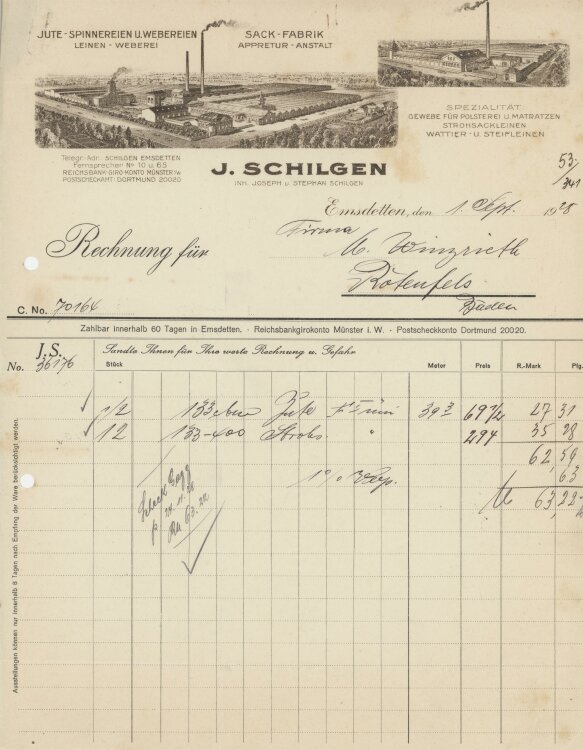 JUTE-SPINNEREIEN U. WEBEREIEN
LEINEN-WEBEREI
SACK-FABRIK
APPRETUR-ANSTALT
SPEZIALITÄT:
GEWEBE FÜR POLSTEREI U. MATRATZEN
STROHSACKLEINEN
WATTIER- U. STEIFLEINEN
Telegr.-Adr.: SCHILGEN EMSDETTEN
Fernsprecher No 10 u. 65
REICHSBANK-GIRO-KONTO MÜNSTER i/W
POSTSCHECKAMT: DORTMUND 20020
J. SCHILGEN
INH. JOSEPH U. STEPHAN SCHILGEN
53/341
Emsdetten, den 1. Sept. 1928
Rechnung für
Firma
M. Winzrieth
Rotenfels
Baden
C. No. 70164
Zahlbar innerhalb 60 Tagen in Emsdetten. · Reichsbankgirokonto Münster i. W. · Postscheckkonto Dortmund 20020.
J. S.
No. 36176
Sandte Ihnen für Ihre werte Rechnung u. Gefahr
Stück Meter Preis R.-Mark Pfg.
1/2 133 Jute 39 3 69 1/2 27 31
12 133-400 Strohs. " 294 35 28
62,59
1% 63
M 63,22
24.11.28
63.22
Ausstellungen können nur innerhalb 8 Tagen nach Empfang der Ware berücksichtigt werden.